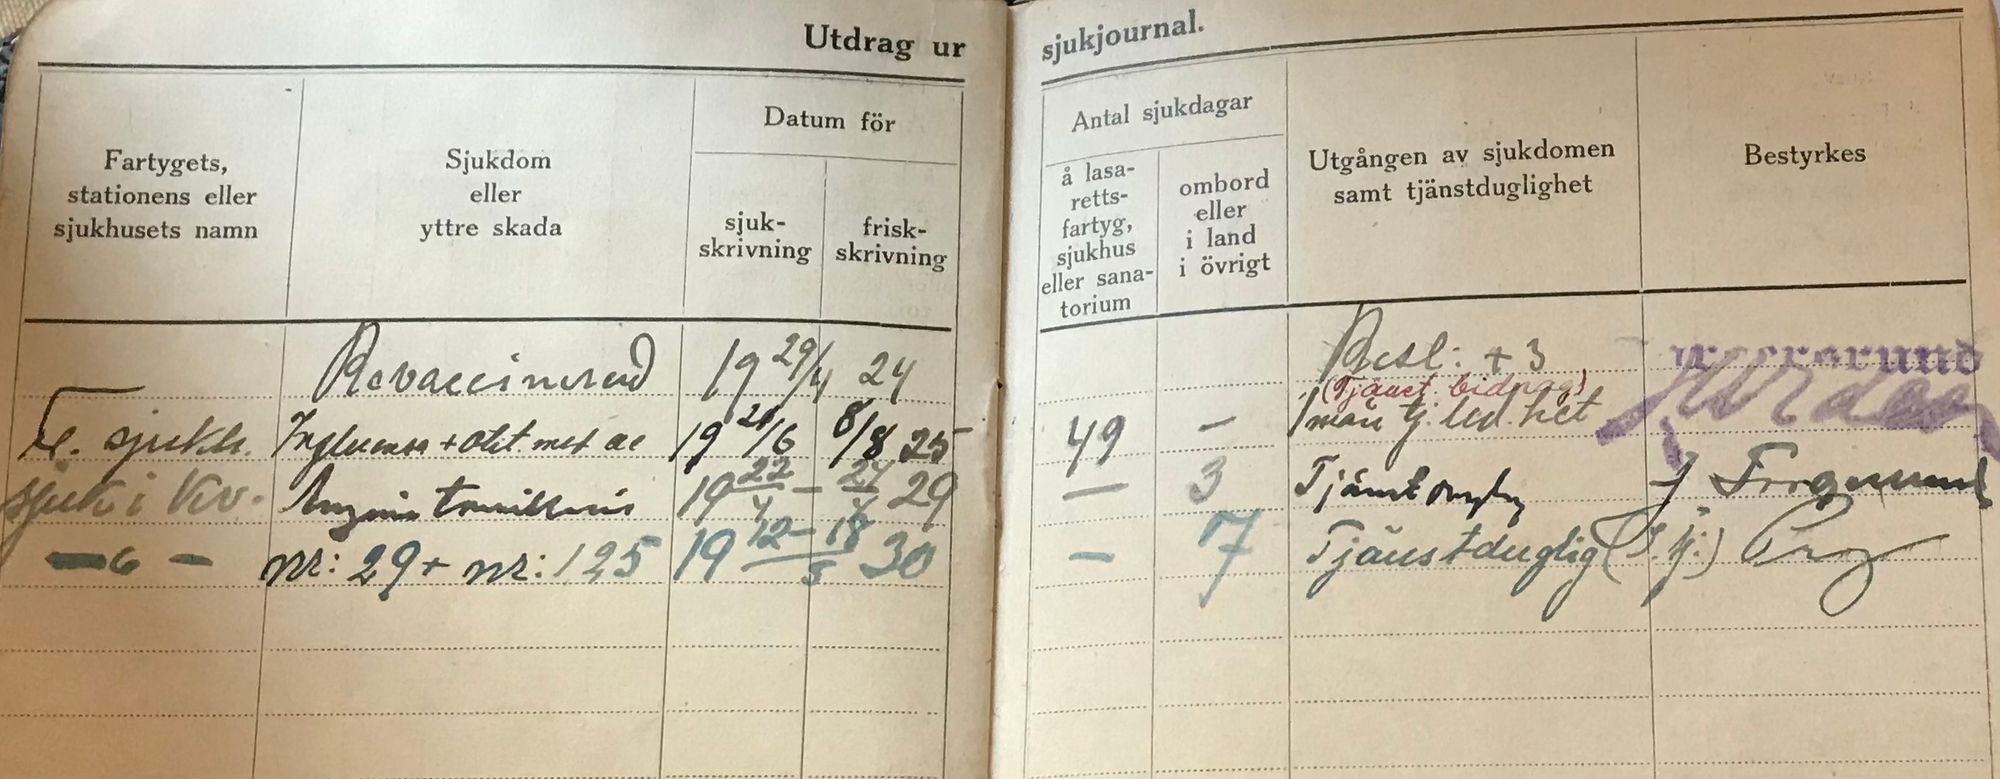 Utdrag ur sjukjournal.
Fartygets,
stationens eller
sjukhusets namn
Sjukdom
eller
yttre skada
Datum för
sjuk-
skrivning
frisk-
skrivning
Antal sjukdagar
å lasa-
retts-
fartyg,
sjukhus
eller sana-
torium
ombord
eller
i land
i övrigt
Utgången av sjukdomen
samt tjänstduglighet
Bestyrkes
Revaccinerad 19 29/4 24 Resl: + 3
(Tjänst. bidrag)
sjukh. Influensa + otit. med ac 19 21/6 8/8 25 49 - 1 mån tj. led. het
sjuk i Kv. Angina tonsillaris 19 22/4 - 24/4 29 — 3
— " — nr: 29 + nr: 125 19 12-18/5 30 — 7 Tjänstduglig